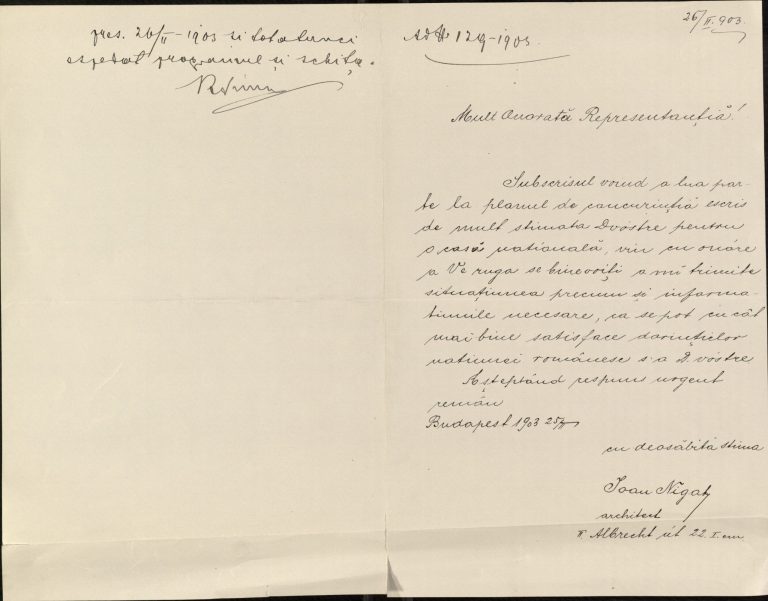 pres. 26/II-1903 si totatunci
espedat programul si schița.
26/II.903.
Ad № 129-1903
Mult Onorată Representanță!
Subscrisul voind a lua par-
te la planul de concurință escris
de mult stimata Dvóstre pentru
o casă natională, vin cu onóre
a Ve ruga se binevoiți a mî trimite
situațiunea precum și informa-
tiunile necesare, ca se pot cu cât
mai bine satisface dorințielor
natiunei românesc s-a D. vóstre
Așteptând respuns urgent
remân
Budapest 1903 25/II
cu deosăbită stima
Ioan Nigal
architect
II. Albrecht út 22. I. em